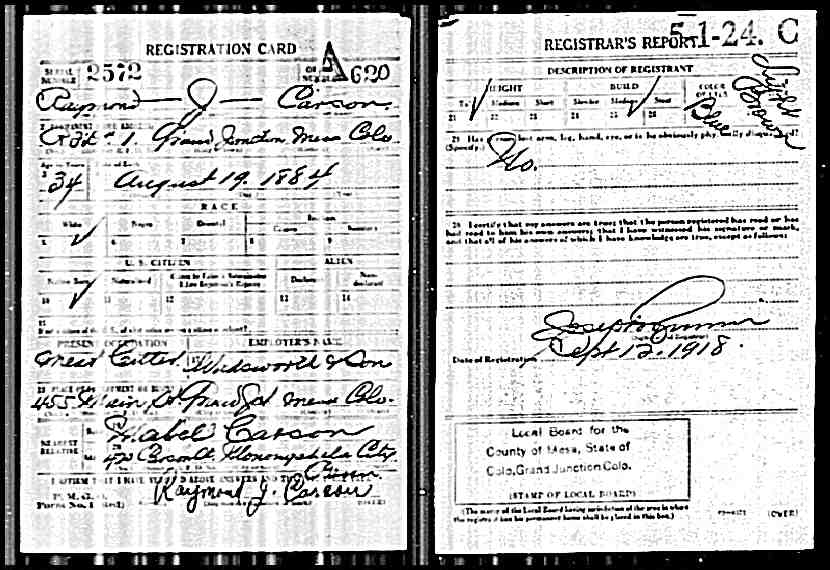 REGISTRATION CARD
SERIAL NUMBER 2572 ORDER NUMBER A 620
Raymond J Carson
R.F.D. # 1. Grand Junction Mesa Colo.
Age in Years Date of Birth
34 August 19. 1884
RACE
White Negro Oriental Indian
Citizen Noncitizen
5 6 7 8 9
U. S. CITIZEN ALIEN
Native Born Naturalized Citizen by Father's Naturalization Before Registrant's Majority Declarant Non-declarant
10 11 12 13 14
15
If not a citizen of the U. S., of what nation are you a citizen or subject?
PRESENT OCCUPATION EMPLOYER'S NAME
Meat Cutter. Wadsworth & Son
PLACE OF EMPLOYMENT OR BUSINESS
455 Main St Grand Jct Mesa Colo.
NEAREST RELATIVE
Mabel Carson
City
I AFFIRM THAT I HAVE VERIFIED ABOVE ANSWERS AND THAT
P. M. G. O.
Form No. 1 (Red) Raymond J. Carson (OVER)
REGISTRAR'S REPORT 5-1-24. C
DESCRIPTION OF REGISTRANT
HEIGHT BUILD COLOR OF EYES
Tall Medium Short Slender Medium Stout Blue Light Brown
21 22 23 24 25 26
29 Has person lost arm, leg, hand, eye, or is he obviously physically disqualified?
(Specify.) No.
30 I certify that my answers are true; that the person registered has read or has
had read to him his own answers; that I have witnessed his signature or mark,
and that all of his answers of which I have knowledge are true, except as follows:
Joseph
Date of Registration Sept 12. 1918.
Local Board for the
County of Mesa, State of
Colo, Grand Junction Colo.
(STAMP OF LOCAL BOARD)
(The stamp of the Local Board having jurisdiction of the area in which
the registrant has his permanent home shall be placed in this box.) (OVER)